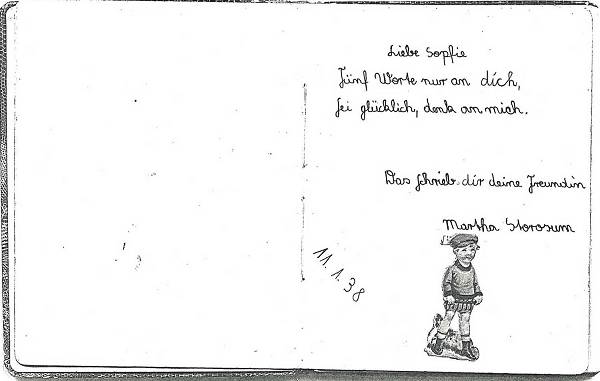 Liebe Sopfie
Fünf Worte nur an dich,
sei glücklich, denk an mich.
Das schrieb dir deine Freundin
Martha Storosum
11. 1. 38